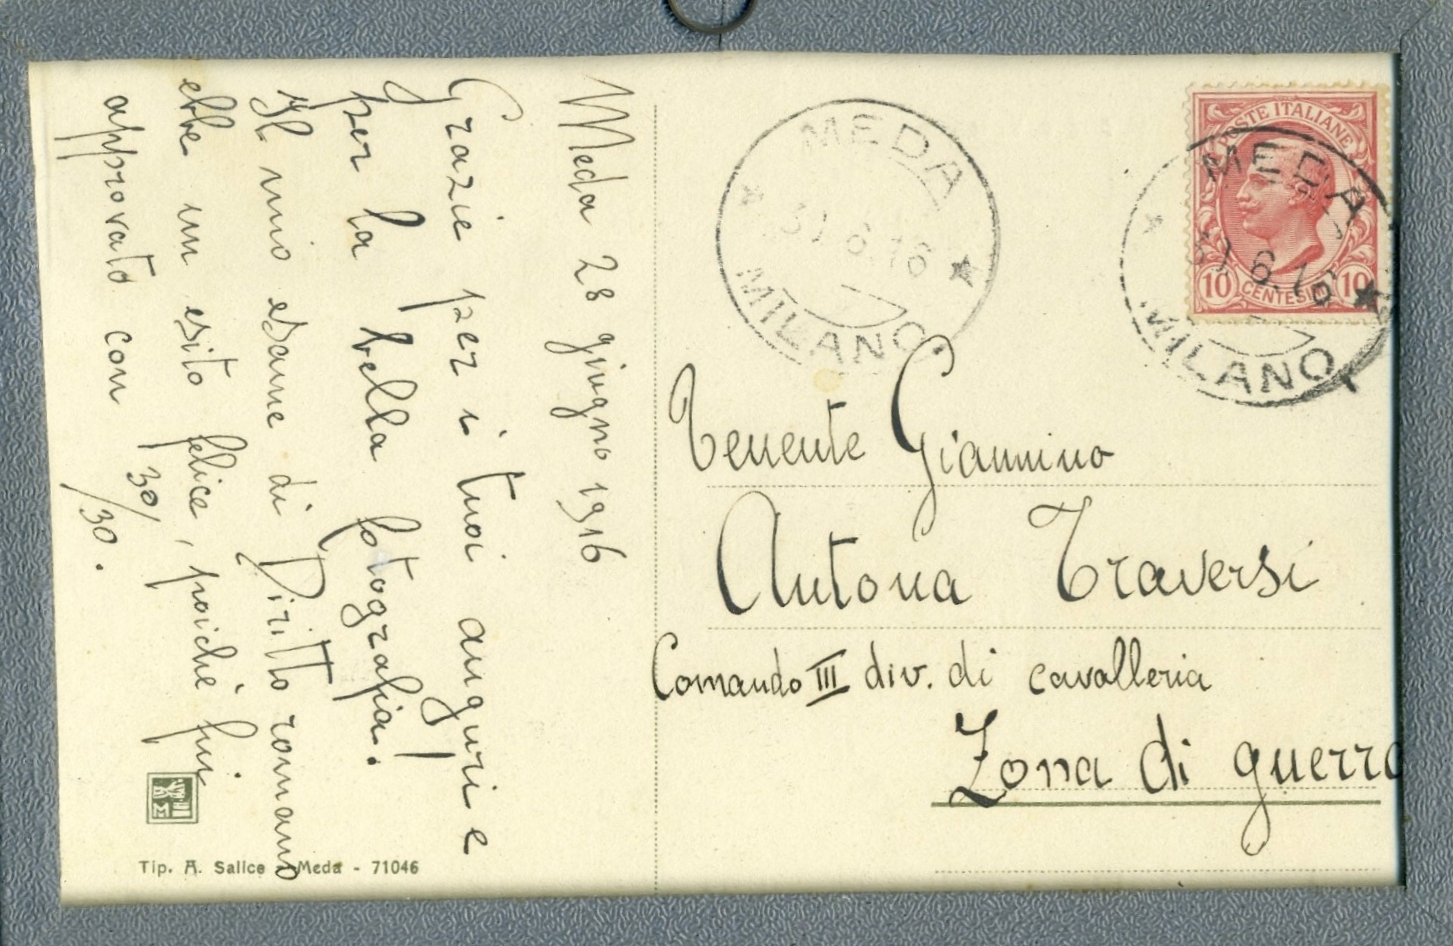 Meda 28 giugno 1916
Grazie per i tuoi auguri e
per la bella fotografia!
Il mio esame di Diritto romano
ebbe un esito felice, poiché fui
approvato con 30/30.
Tip. A. Salice - Meda - 71046
MEDA
31.6.16
MILANO
POSTE ITALIANE
10 CENTESIMI 10
MEDA
31.6.16
MILANO
Tenente Giannino
Antona Traversi
Comando III div. di cavalleria
Zona di guerra